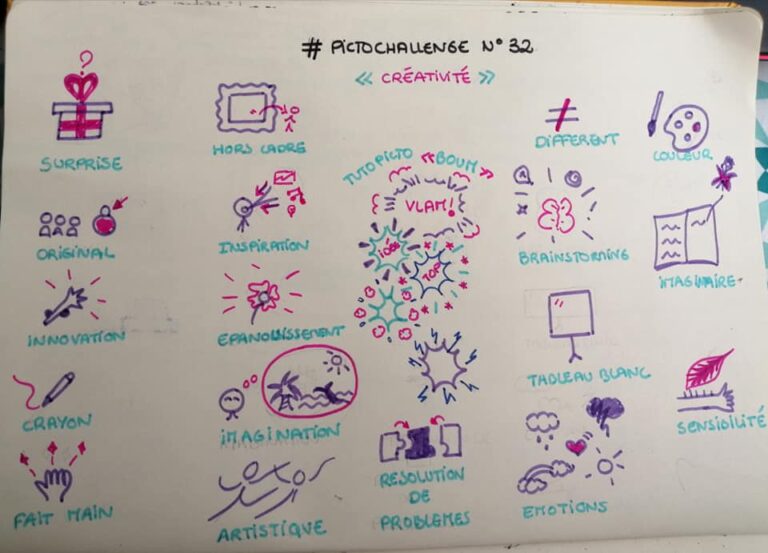 # PICTOCHALLENGE N° 32
« CRÉATIVITÉ »
?
SURPRISE
HORS CADRE
DIFFERENT
COULEUR
TUTO PICTO « BOUM »
VLAM!
ORIGINAL
INSPIRATION
BRAINSTORMING
IMAGINAIRE
TOP
INNOVATION
EPANOUISSEMENT
TABLEAU BLANC
CRAYON
IMAGINATION
SENSIBILITÉ
FAIT MAIN
ARTISTIQUE
RESOLUTION
DE
PROBLEMES
EMOTIONS